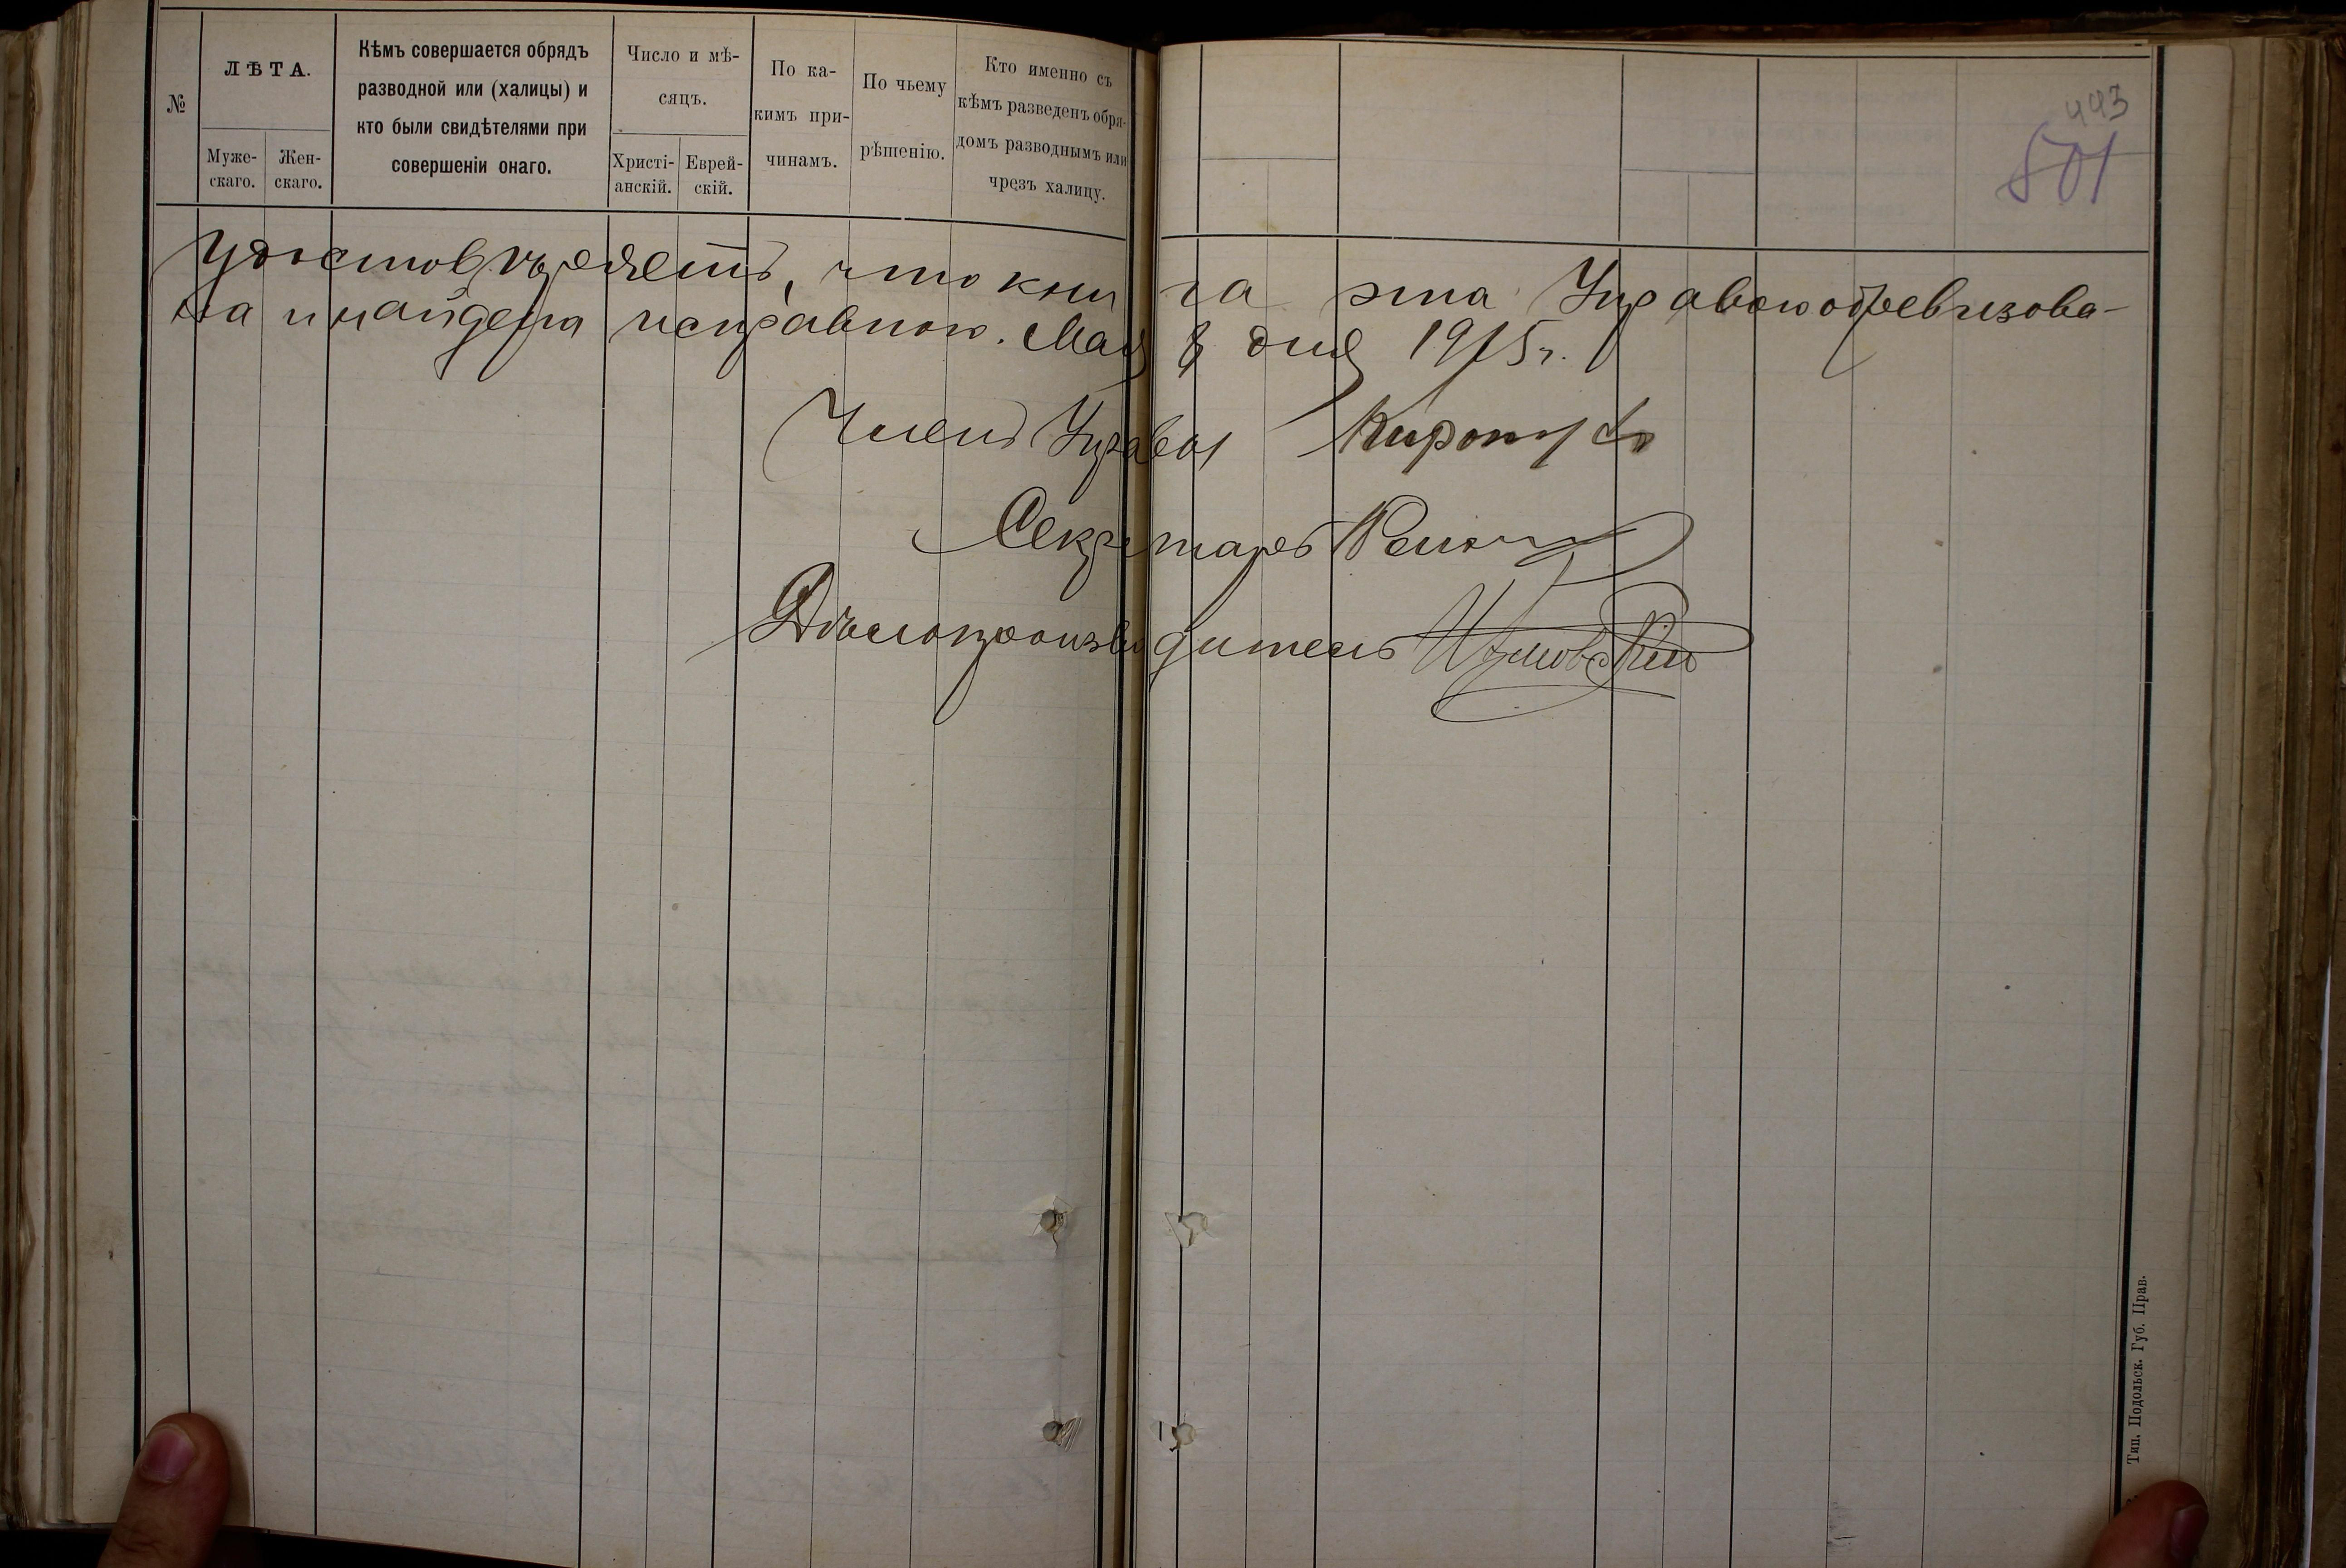 №
ЛѢТА.
Муже-
скаго.
Жен-
скаго.
Кѣмъ совершается обрядъ
разводной или (халицы) и
кто были свидѣтелями при
совершеніи онаго.
Число и мѣ-
сяцъ.
Христі-
анскій.
Еврей-
скій.
По ка-
кимъ при-
чинамъ.
По чьему
рѣшенію.
Кто именно съ
кѣмъ разведенъ обря-
домъ разводнымъ или
чрезъ халицу.
443
501
Удостовѣряетъ, что книга эта Управою обревизова-
на и найдена исправною. Мая 8 дня 1915 г.
Членъ Управы
Секретарь
Дѣлопроизводитель
Тип. Подольск. Губ. Прав.